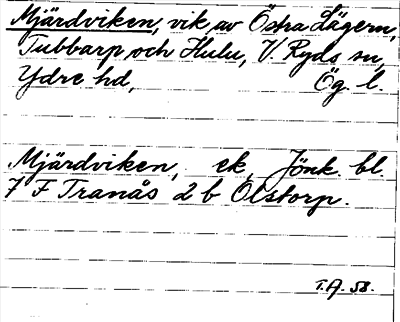 Mjärdviken, vik av Östra Lägern,
Tubbarp och Hulu, V. Ryds sn,
Ydre hd, Ög. l.
Mjärdviken, ek, Jönk. bl.
7 F Tranås 2 b Olstorp.
T.A. 58.